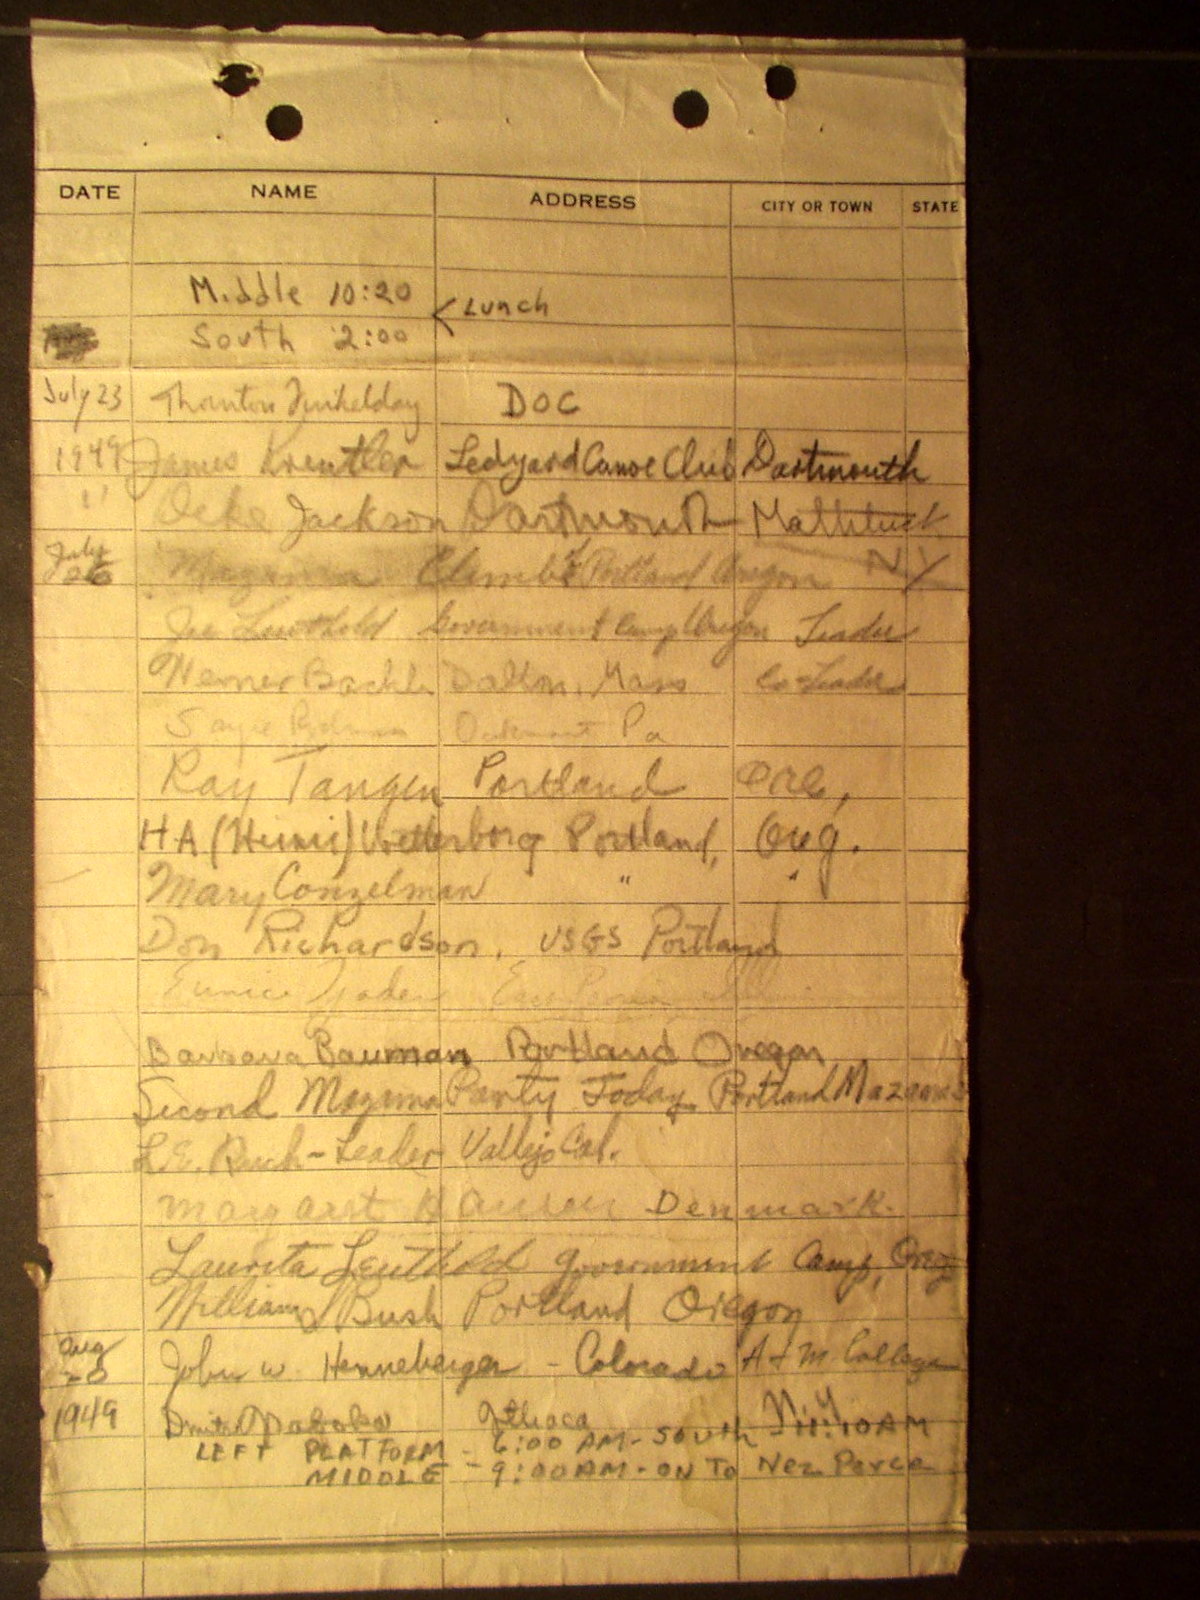 DATE NAME ADDRESS CITY OR TOWN STATE
Middle 10:20
< Lunch
South 2:00
July 23 Thornton DOC
1949 James Kreutler Ledyard Canoe Club Dartmouth
" Deke Jackson Dartmouth Mattituck
NY
July 26 Mazama Climb of Portland Oregon
Joe Leuthold Government Camp Oregon Leader
Werner Dalton, Mass Co-Leader
Pa
Ray Tangen Portland Ore,
HA Portland, Oreg.
Mary Conzelman " "
Don Richardson, USGS Portland
Eunice Yoder
Barbara Bauman Portland Oregon
Second Mazama Party Today Portland Mazamas
L.E. - Leader Vallejo Cal.
Margaret Denmark.
Laurita Leuthold Government Camp, Oreg
William Bush Portland Oregon
Aug 20 John W. Henneberger - Colorado A & M College
1949 Ithaca N.Y.
LEFT PLATFORM - 6:00 AM - SOUTH 11:10 AM
MIDDLE - 9:00 AM - ON TO Nez Perce